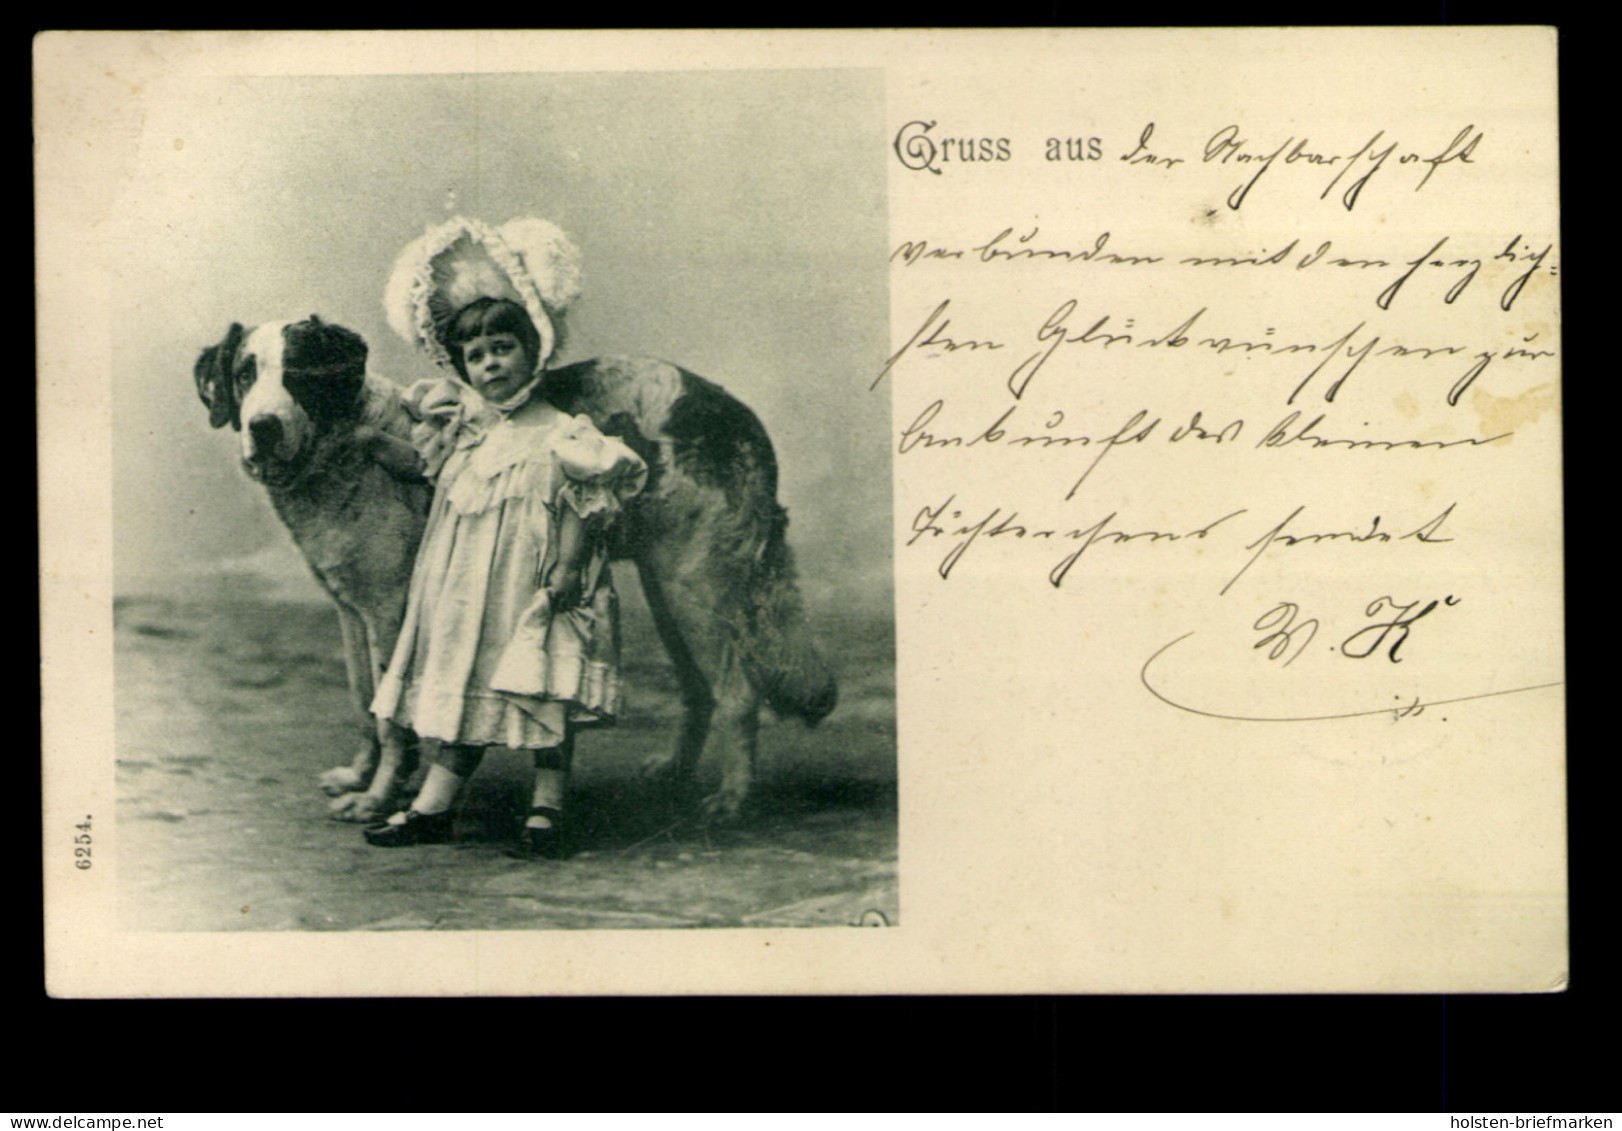 Gruss aus der Nachbarschaft
verbunden mit den herzlich=
sten Glückwünschen zur
Ankunft des kleinen
Töchterchens sendet
W. K
6254.
delcampe.net
holsten-briefmarken